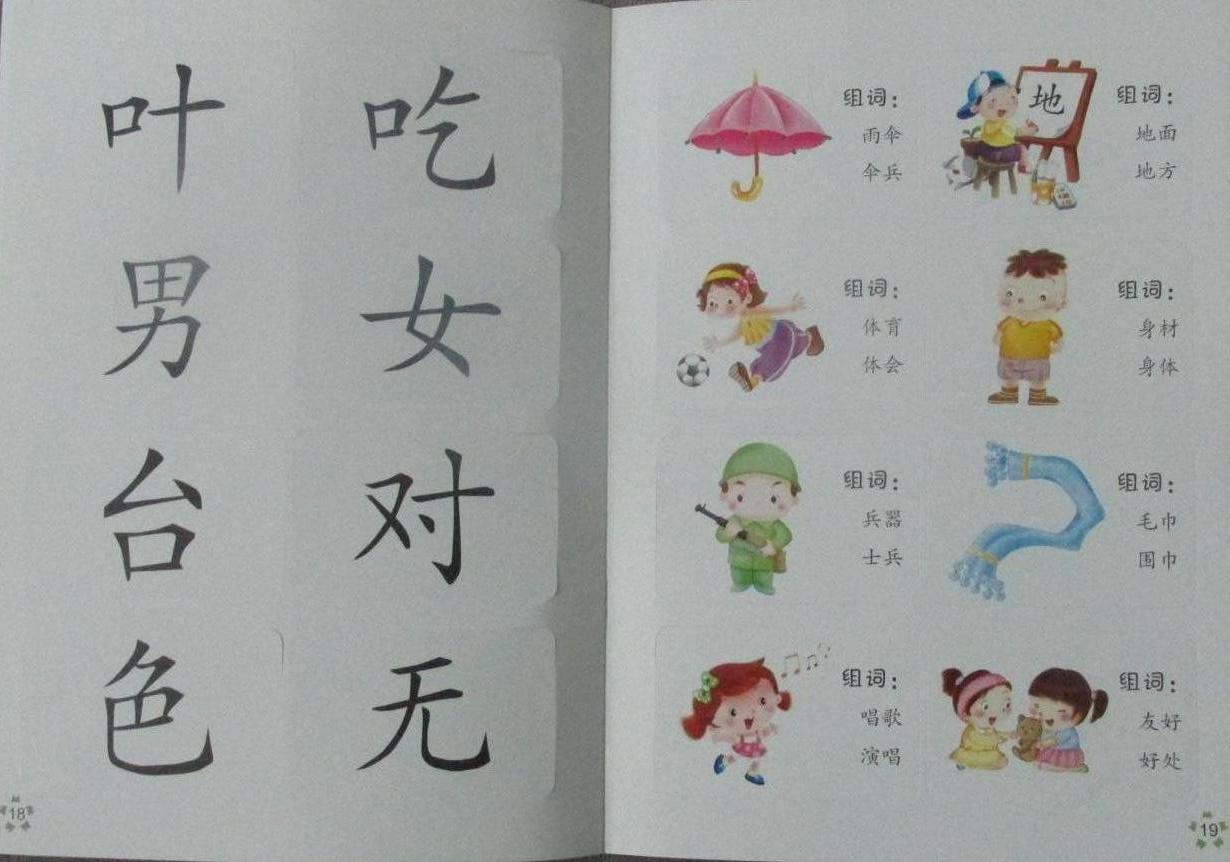 叶 吃
男 女
台 对
色 无
18
组词：
雨伞
伞兵
地
组词：
地面
地方
组词：
体育
体会
组词：
身材
身体
组词：
兵器
士兵
组词：
毛巾
围巾
组词：
唱歌
演唱
组词：
友好
好处
19